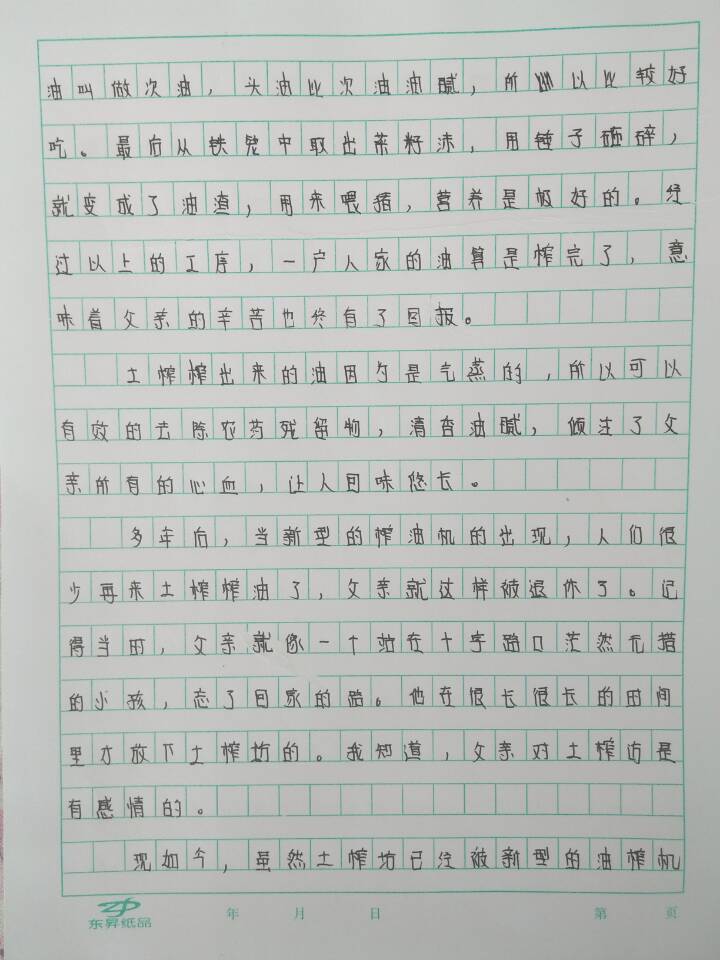 油叫做次油，头油比次油油腻，所以比较好
吃。最后从铁凳中取出菜籽，用锤子砸碎，
就变成了油渣，用来喂猪，营养是极好的。经
过以上的工序，一户人家的油算是榨完了，意
味着父亲的辛苦也终有了回报。
土榨榨出来的油因为是气蒸的，所以可以
有效的去除农药残留物，清香油腻，倾注了父
亲所有的心血，让人回味悠长。
多年后，当新型的榨油机的出现，人们很
少再来土榨榨油了，父亲就这样被退休了。记
得当时，父亲就像一个站在十字路口茫然无措
的小孩，忘了回家的路。他在很长很长的时间
里才放下土榨坊的。我知道，父亲对土榨访是
有感情的。
现如今，虽然土榨坊已经被新型的油榨机
东昇纸品 年 月 日 第 页